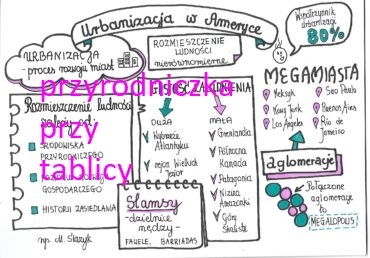 Urbanizacja w Ameryce
Współczynnik
urbanizacji
80%
URBANIZACJA
proces rozwoju miast
ROZMIESZCZENIE
LUDNOŚCI
nierównomierne
przyrodniczka
przy
tablicy
Rozmieszczenie ludności
zależy od:
ŚRODOWISKA
PRZYRODNICZEGO
GOSPODARCZEGO
HISTORII ZASIEDLANIA
DUŻA
Wybrzeże
Atlantyku
rejon Wielkich
Jezior
MAŁA
Grenlandia
Północna
Kanada
Patagonia
Nizina
Amazonki
Góry
Skaliste
Slumsy
-dzielnice
nędzy-
FAWELE, BARRIADAS
MEGAMIASTA
Meksyk
Nowy Jork
Los Angeles
Sao Paulo
Buenos Aires
Rio de
Janeiro
aglomeracje
Połączone
aglomeracje
to
MEGALOPOLIS